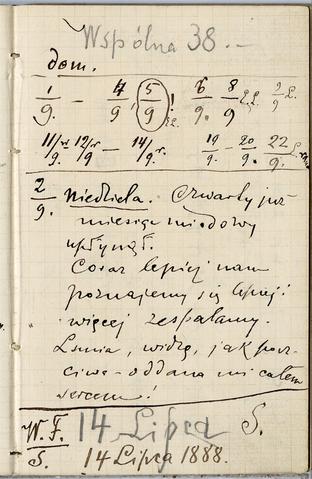 Wspólna 38. —
dom.
1/9. — 4/9, 5/9! 6/9. 8/9 9/9
11/9. 12/9 — 14/9. 19/9. — 20/9. 22/9.
2/9. Niedziela. Czwarty już
miesiąc miodowy
upłynął.
Coraz lepiej nam
poznajemy się lepiej i
więcej zespalamy.
widzę, jak pocz-
ciwa — oddana mi całem
sercem!
W. F. 14 Lipca S.
S. 14 Lipca 1888.